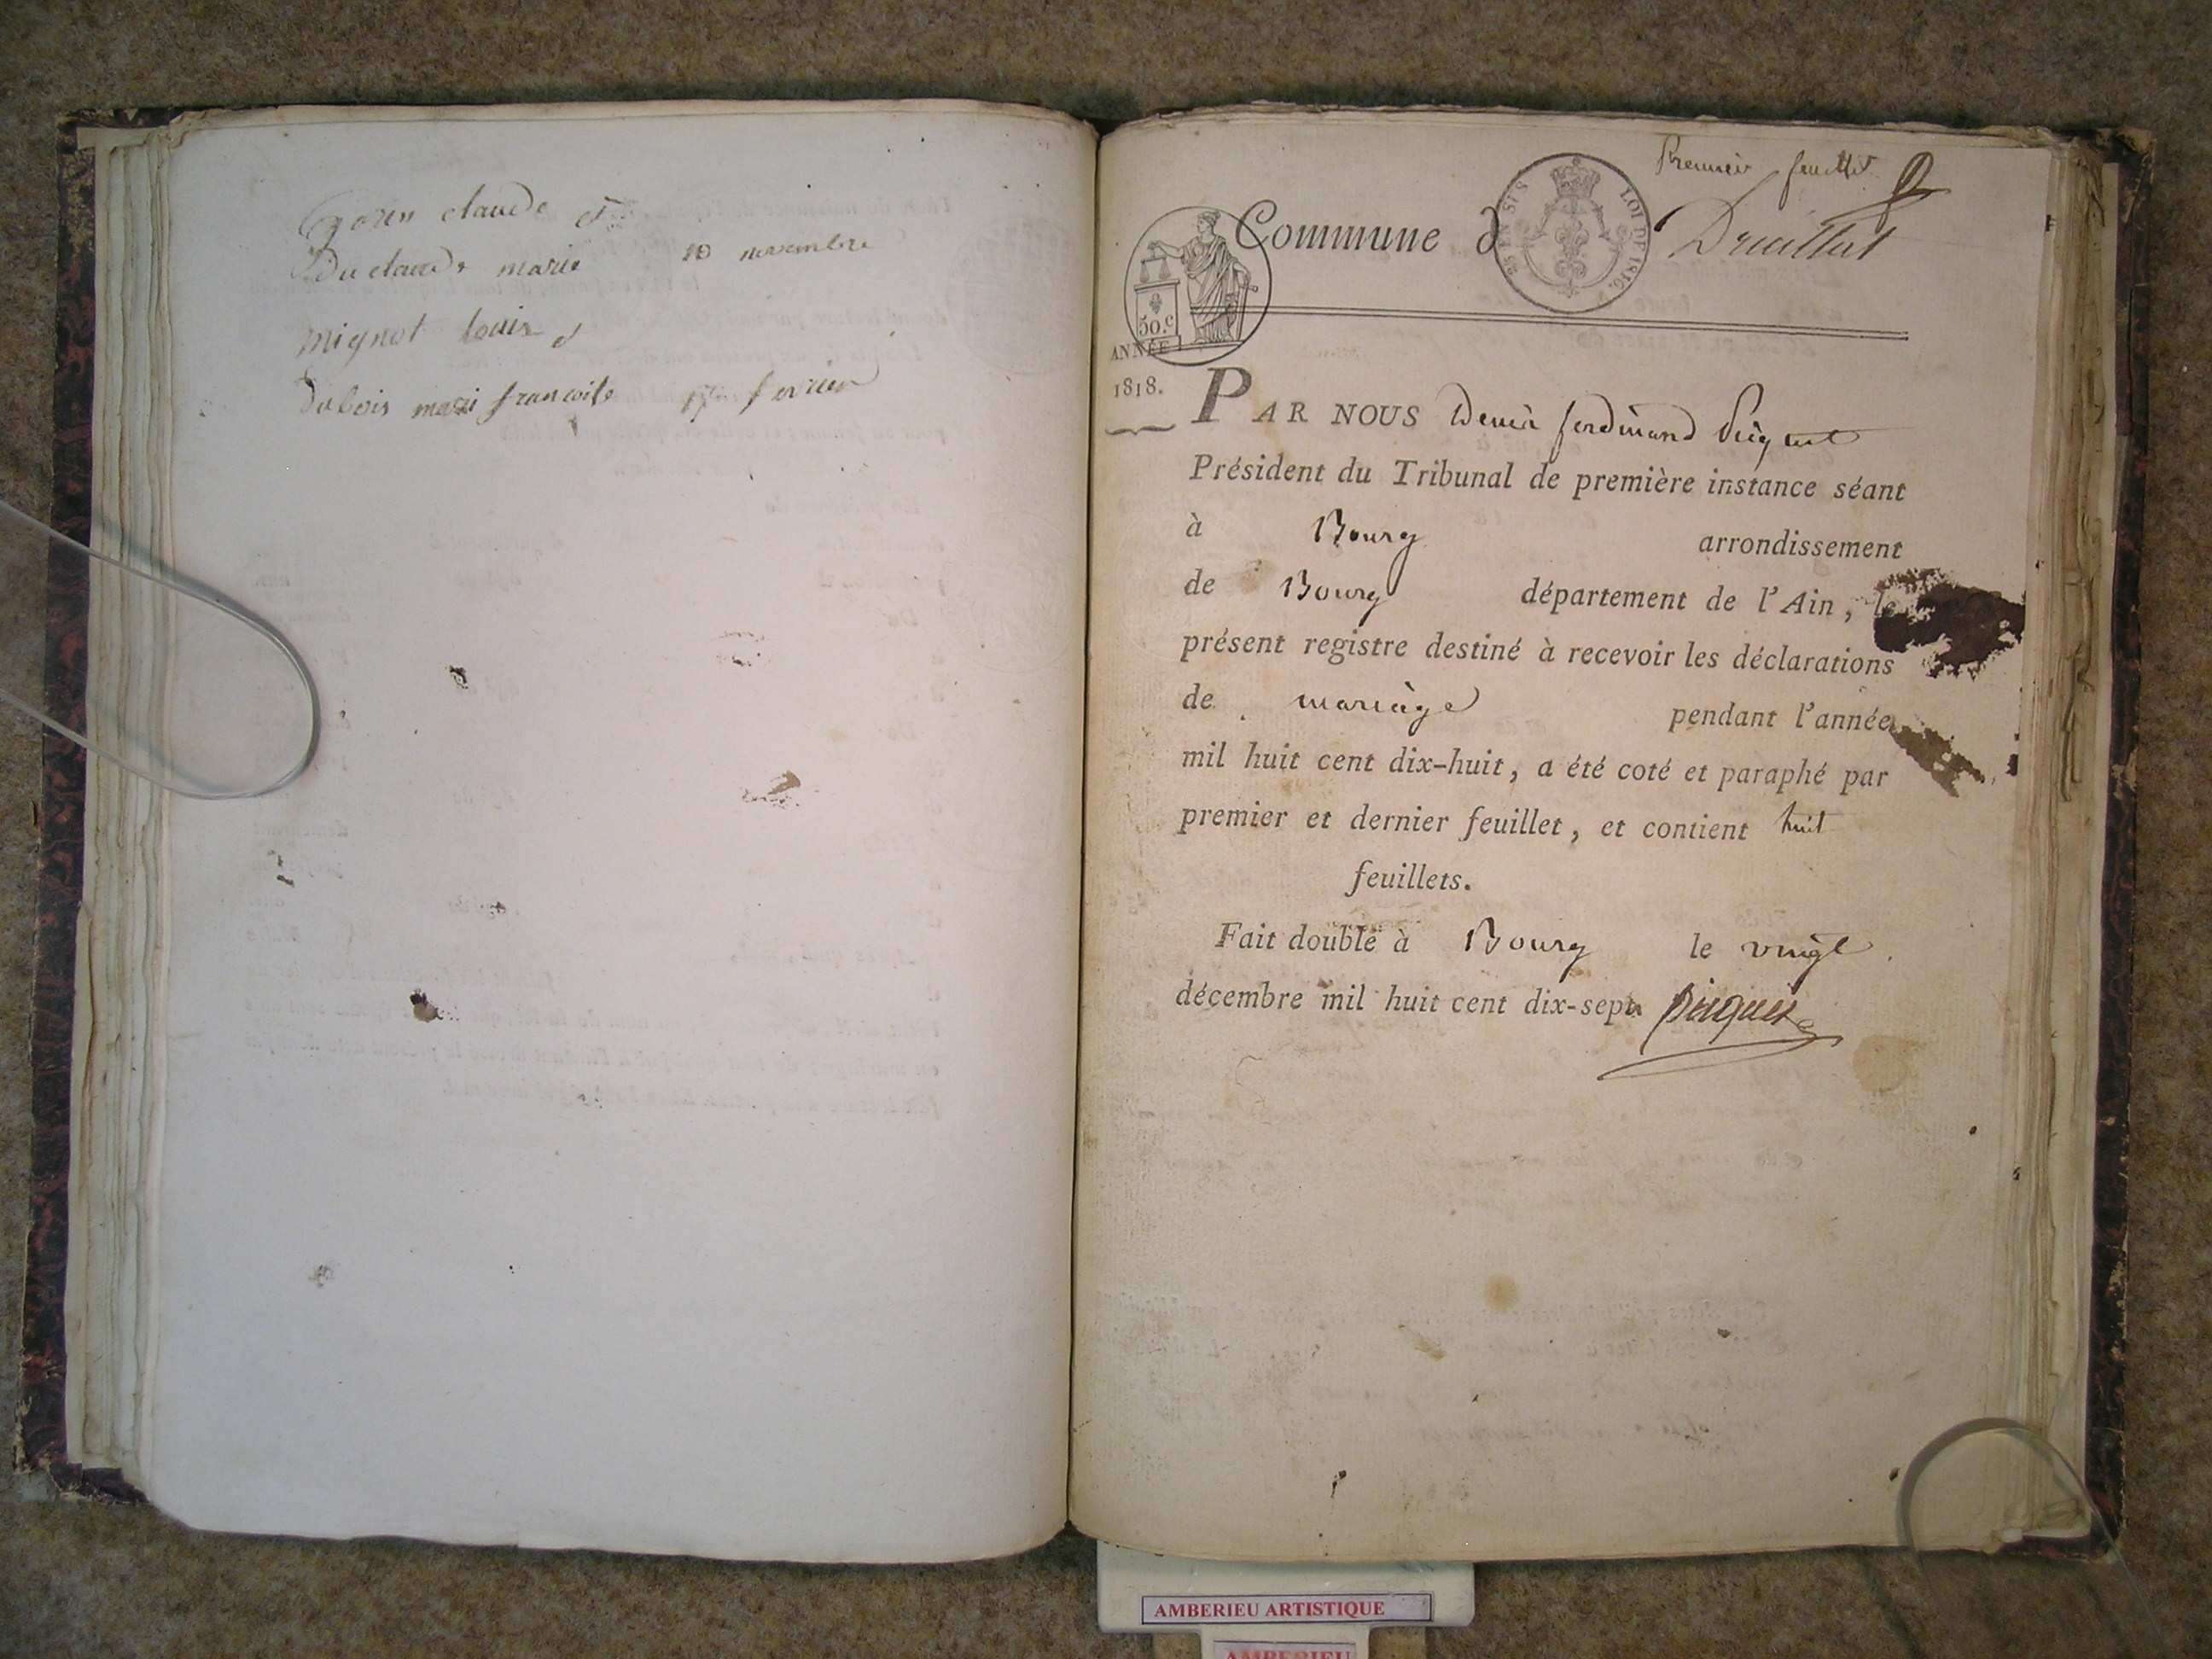 gorin claude et
Du claude marie 10 novembre
mignot louis et
dubois mari francoise 17 fevrier
Premier feuillet
Commune d Druillat
25 EN SUS LOI DE 1816.
50.c
ANNÉE
1818.
PAR NOUS Denis ferdinand Picquet
Président du Tribunal de première instance séant
à Bourg arrondissement
de Bourg département de l'Ain, le
présent registre destiné à recevoir les déclarations
de mariage pendant l'année
mil huit cent dix-huit, a été coté et paraphé par
premier et dernier feuillet, et contient huit
feuillets.
Fait double à Bourg le vingt
décembre mil huit cent dix-sept. Picquet
AMBERIEU ARTISTIQUE
AMBERIEU